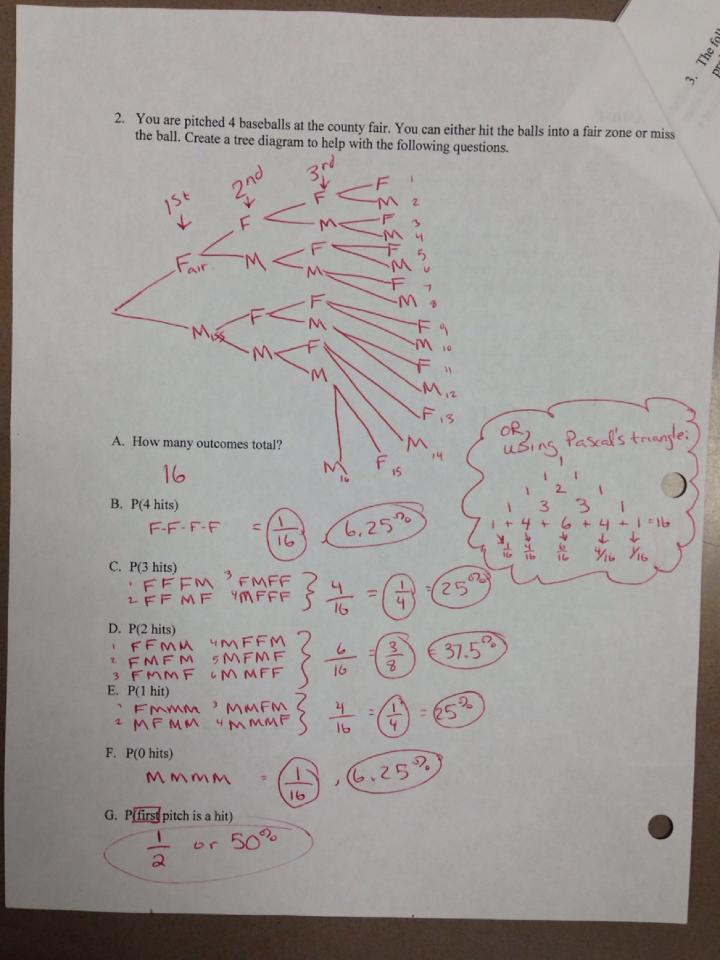 3. The foll
2. You are pitched 4 baseballs at the county fair. You can either hit the balls into a fair zone or miss
the ball. Create a tree diagram to help with the following questions.
1st 2nd 3rd
F 1
F
M 2
F
F 3
M
M 4
Fair
F 5
F
M 6
M
F 7
M
M 8
F 9
F
M 10
F
F 11
M
M 12
Miss
F 13
F
M 14
M
F 15
M
M 16
A. How many outcomes total?
16
B. P(4 hits)
F-F-F-F = 1/16, 6.25%
C. P(3 hits)
1 FFFM 3 FMFF
2 FFMF 4 MFFF } 4/16 = 1/4 = 25%
D. P(2 hits)
1 FFMM 4 MFFM
2 FMFM 5 MFMF } 6/16 = 3/8 = 37.5%
3 FMMF 6 MMFF
E. P(1 hit)
1 FMMM 3 MMFM
2 MFMM 4 MMMF } 4/16 = 1/4 = 25%
F. P(0 hits)
MMMM = 1/16, 6.25%
G. P(first pitch is a hit)
1/2 or 50%
OR,
using Pascal's triangle:
1
1 1
1 2 1
1 3 3 1
1 + 4 + 6 + 4 + 1 = 16
1/16 4/16 6/16 4/16 1/16